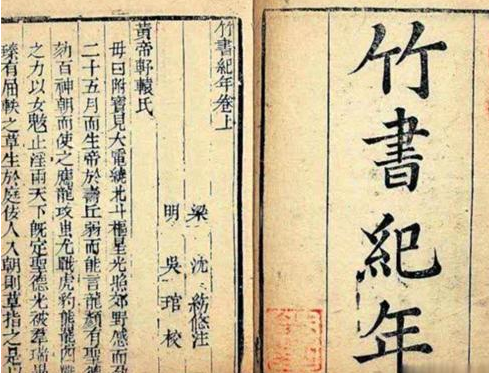 竹書紀年
竹書紀年卷上
梁 沈約修注
明 吳琯校
黃帝軒轅氏
母曰附寶見大電繞北斗樞星光照郊野感而孕
二十五月而生帝於壽丘弱而能言龍顏有聖德
劾百神朝而使之應龍攻蚩尤戰虎豹熊羆四
之力以女魃止淫雨天下既定聖德光被羣瑞畢
臻有屈軼之草生於庭佞人入朝則草指之是以